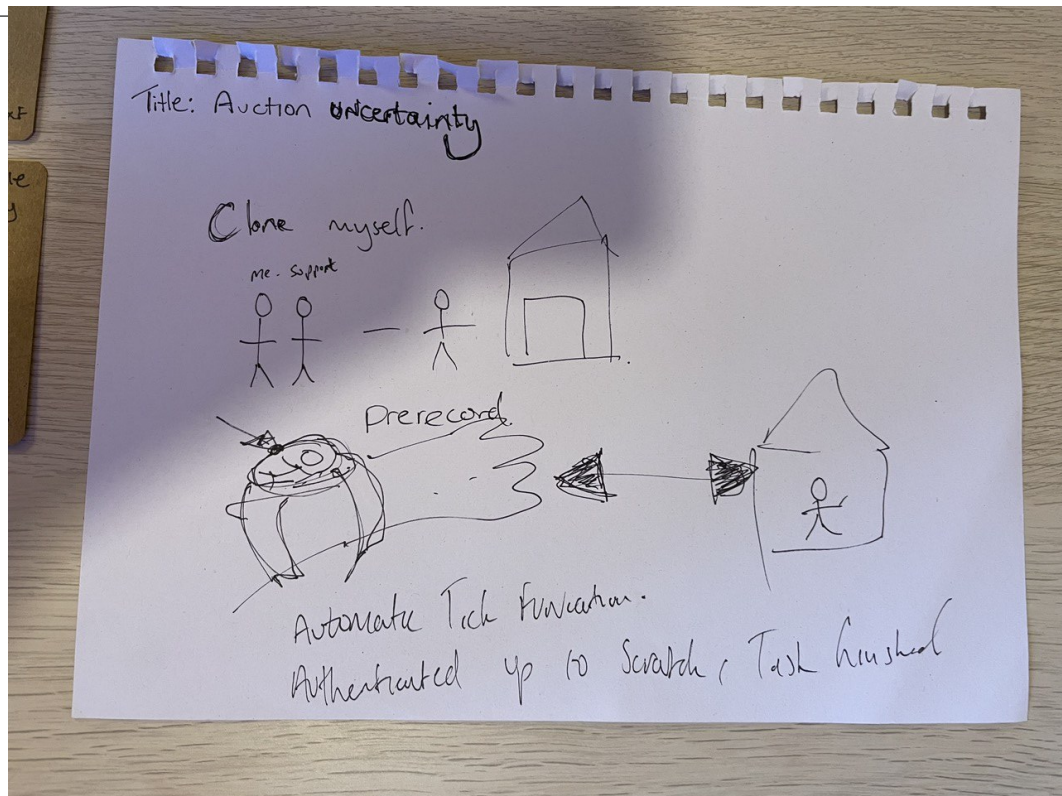 Title: Auction uncertainty
Clone myself.
me - support
Prerecord.
Automatic Tick Function.
Authenticated up to Scratch, Task finished
le
y